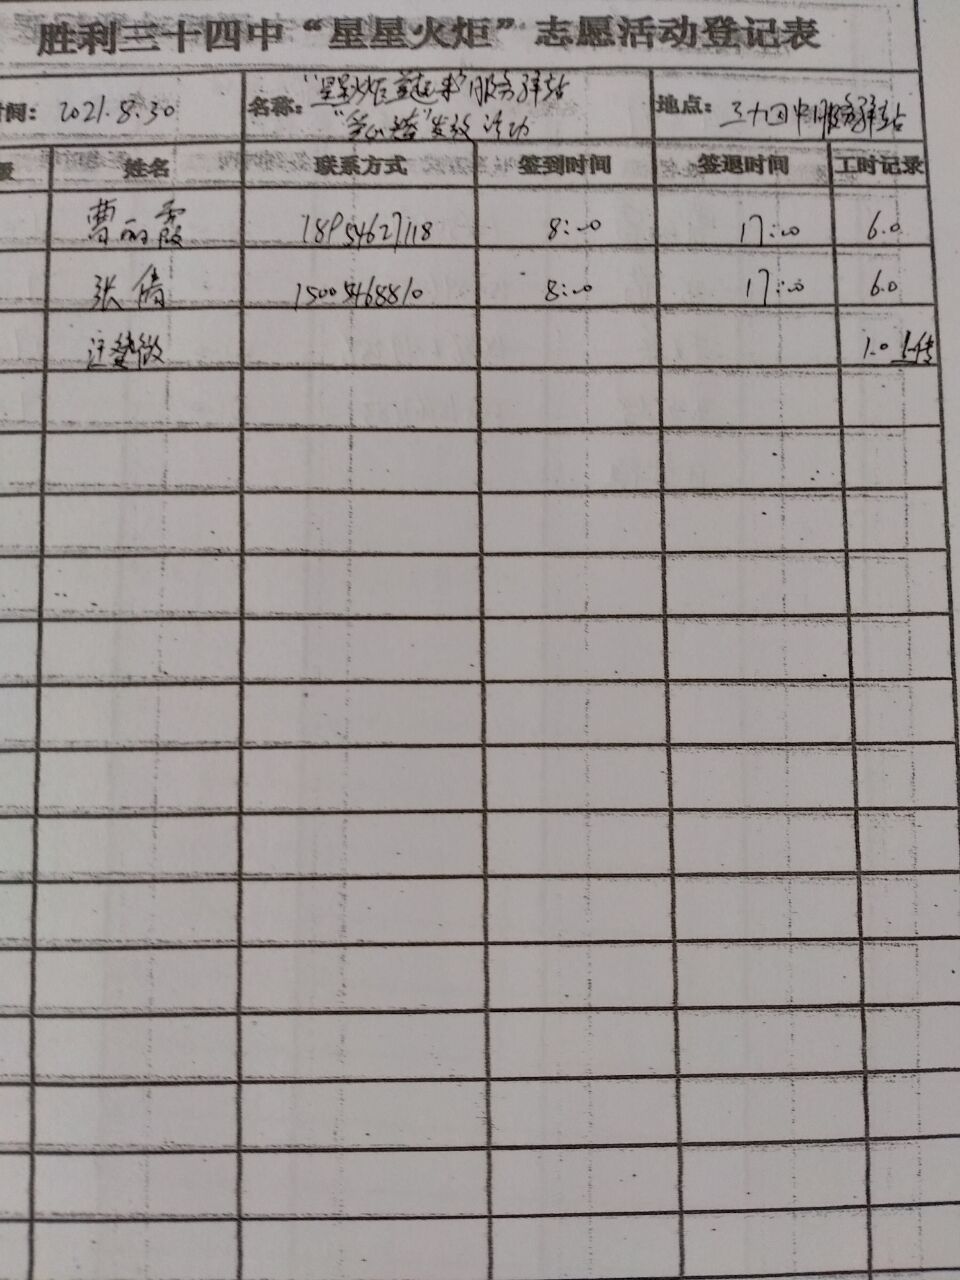 胜利三十四中“星星火炬”志愿活动登记表
时间: 2021.8.30
名称: “星星火炬 益起来”服务驿站
发放活动
地点: 三十四中服务驿站
级 姓名 联系方式 签到时间 签退时间 工时记录
曹丽霞 18954627118 8:00 17:00 6.0
张倩 15005468810 8:00 17:00 6.0
汪 微 1.0 上传